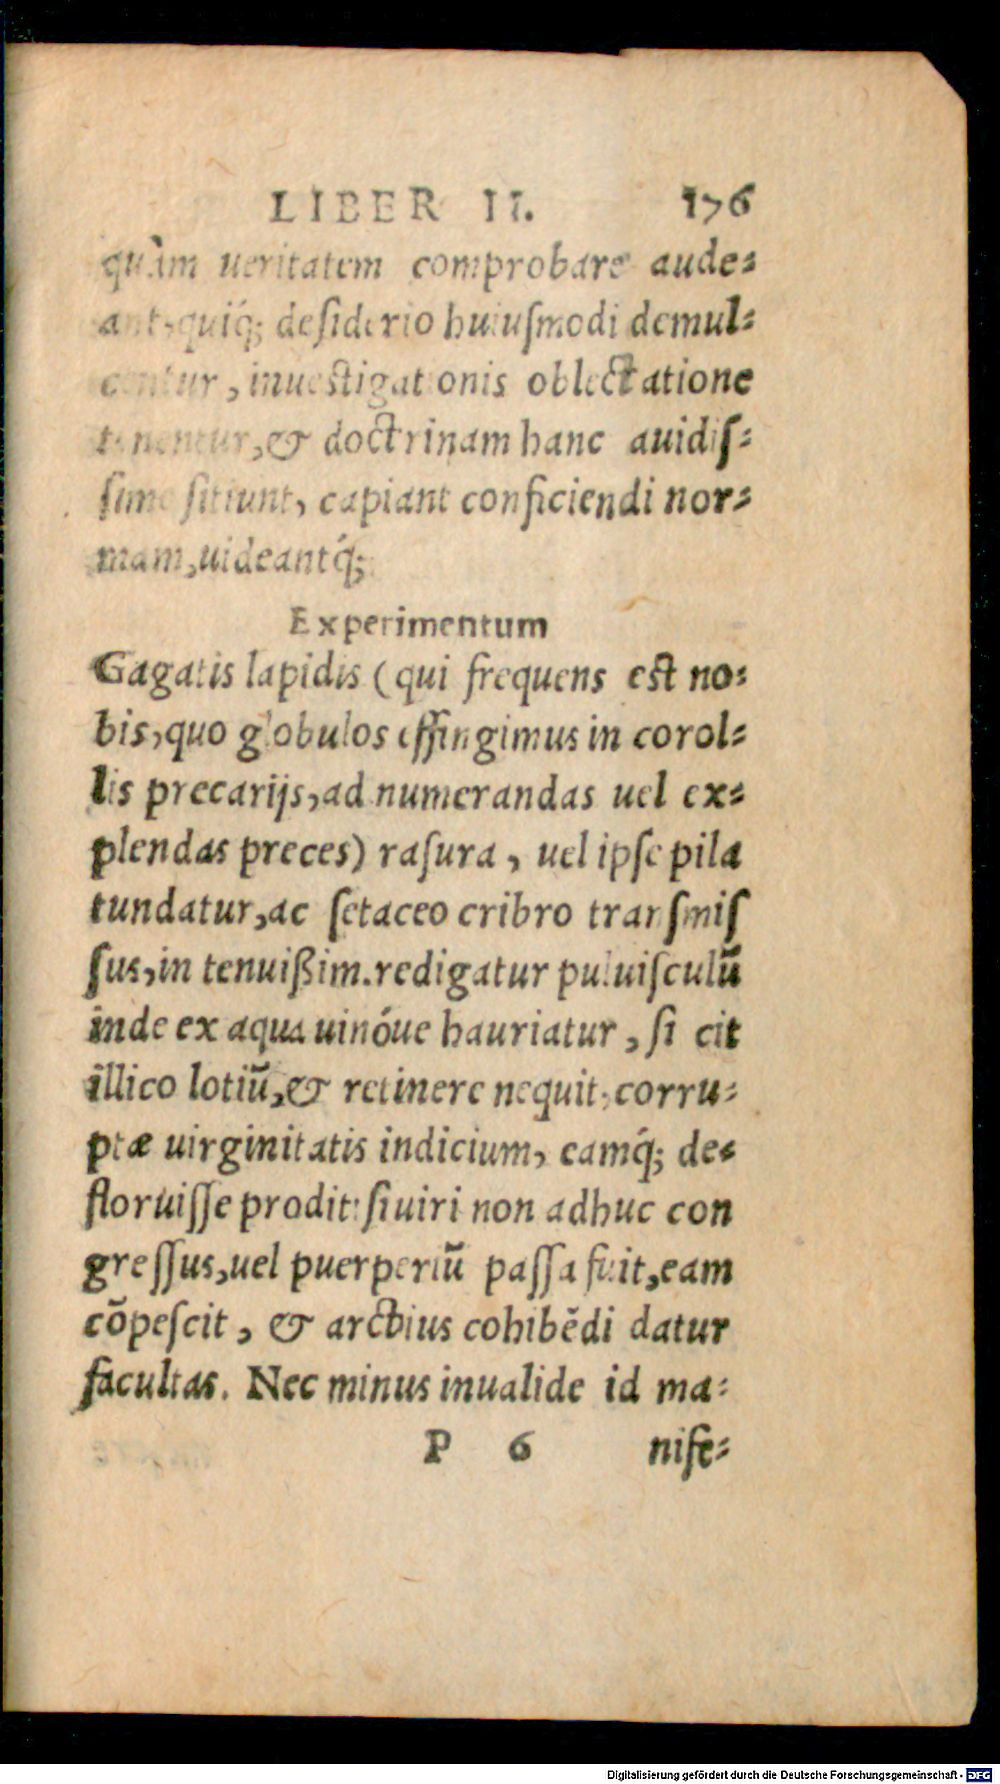 LIBER II. 176
quàm ueritatem comprobare aude⸗
ant, quiq́; desiderio huiusmodi demul⸗
centur, inuestigationis oblectatione
tenentur, & doctrinam hanc auidis⸗
sime sitiunt, capiant conficiendi nor⸗
mam, uideantq́;
Experimentum
Gagatis lapidis (qui frequens est no⸗
bis, quo globulos effingimus in corol⸗
lis precarijs, ad numerandas uel ex⸗
plendas preces) rasura, uel ipse pila
tundatur, ac setaceo cribro transmis
sus, in tenuißim. redigatur puluisculũ
inde ex aqua uinóue hauriatur, si cit
illico lotiũ, & retinere nequit, corru⸗
ptæ uirginitatis indicium, eamq́; de⸗
floruisse prodit: si uiri non adhuc con
gressus, uel puerperiũ passa fuit, eam
cõpescit, & arctius cohibẽdi datur
facultas. Nec minus inualide id ma⸗
P 6 nife⸗
Digitalisierung gefördert durch die Deutsche Forschungsgemeinschaft - DFG